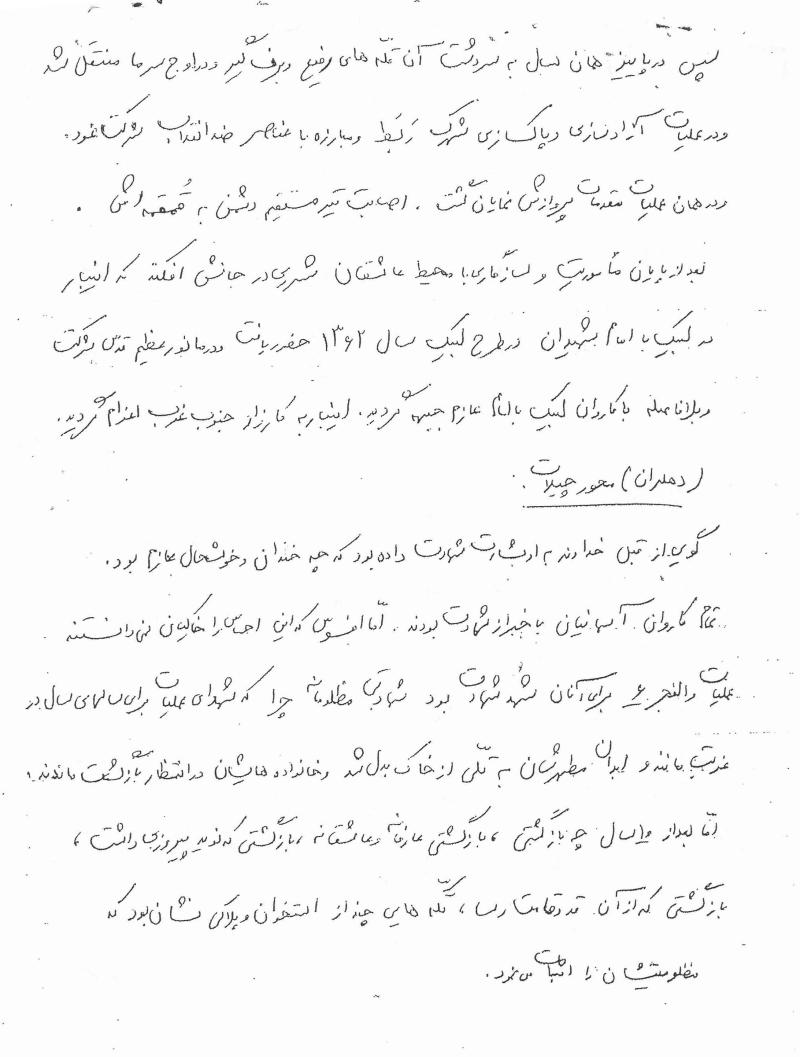 سپس در پاییز همان سال به سردشت آن قله های رفیع و برف گیر و در اوج سرما منتقل شد
و در عملیات آزادسازی و پاکسازی شهرک ربَط و مبارزه با عناصر ضد انقلاب شرکت نمود.
و در همان عملیات مقدمات پروازش نمایان گشت . اصابت تیر مستقیم دشمن به قُمقمه اش .
بعد از پایان مأموریت و سازگاری با محیط عاشقان شهری در جانش افکند که اینبار
در لبیک یا امام بشهیدان در طرح لبیک سال ۱۳۶۲ حضور یافت و در مانور عظیم قدس شرکت
و بلافاصله با کاروان لبیک یا امام عازم جبهه گردید. اینبار به کارزار جنوب غرب اعزام گردید.
(دهلران) محور چیلات .
گویی از قبل خداوند به او بشارت شهادت داده بود که چه خندان و خوشحال عازم بود.
تمام کاروان آسمانیان با خبر از شهادت بودند . امّا افسوس که این احساس را خاکیان نمی دانستند
عملیات والفجر ۶ برای آنان شُهد شهادت بود شهادتی مظلومانه چرا که شهدای عملیات برای سالهای سال در
غربت ماندند و ابدان مطهرشان به تلّی از خاک بدل شد و خانواده هایشان در انتظار بازگشت ماندند.
امّا بعد از ۱۰ سال چه بازگشتی ، بازگشتی عارفانه و عاشقانه ، بازگشتی که نوید پیروزی داشت ،
بازگشتی که از آن قد و قامت رسا ، تکّه هایی چند از استخوان و پلاکی نشان بود که
مظلومیتشان را اثبات می نمود.